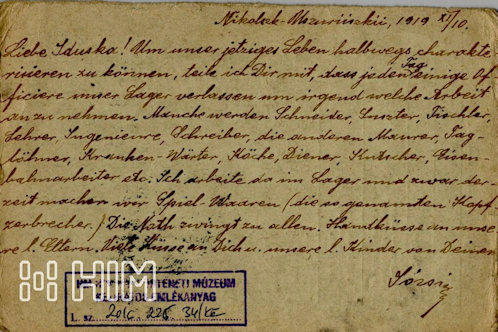 Nikolsk-Ussuriiskii, 1919 XI/10.
Liebe Iduska! Um unser jetziges Leben halbwegs charakte
risieren zu können, teile ich Dir mit, dass jeden Tag einige Of
ficiere unser Lager verlassen um irgend welche Arbeit
anzunehmen. Manche werden Schneider, Schuster, Tischler,
Lehrer, Ingenieure, Schreiber, die anderen Maurer, Tag-
löhner, Kranken-Wärter, Köche, Diener, Kutscher, Eisen-
bahnarbeiter etc. Ich arbeite da im Lager und zwar der-
zeit machen wir Spiel Waaren (die so genannten Kopf-
zerbrecher.) Die Noth zwingt zu allen. Handküsse an unse
re l. Eltern. Viele Küsse an Dich u. unsere l. Kinder von Deinen
HIM
MÚZEUM
EMLÉKANYAG
l. sz.